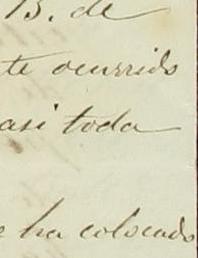 B. de
te ocurrido
asi toda
ha colocado